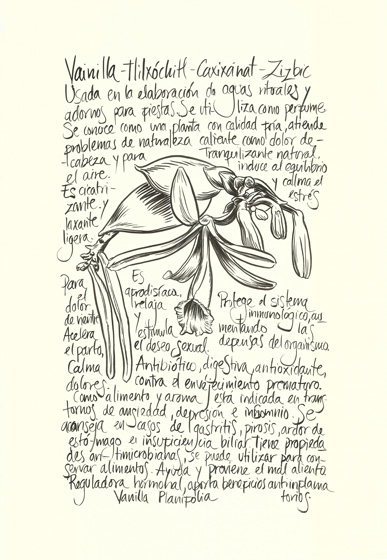 Vainilla - Tlilxóchitl - Caxixánat - Zizbic
Usada en la elaboración de aguas rituales y
adornos para fiestas. Se utiliza como perfume.
Se conoce como una planta con calidad fría, atiende
problemas de naturaleza caliente como dolor de
cabeza y para
el aire.
Es cicatri-
zante y
laxante
ligera.
Tranquilizante natural,
induce al equilibrio
y calma el
estrés
Para
el
dolor
de vientre
Acelera
el parto,
Calma
dolores.
Es
afrodisíaca,
relaja
y
estimula
el deseo sexual.
Protege el sistema
inmunológico, au
mentando las
defensas del organismo
Antibiótico, digestiva, antioxidante,
contra el envejecimiento prematuro.
Como alimento y aroma está indicada en tras-
tornos de ansiedad, depresión e insomnio. Se
aconseja en casos de gastritis, pirosis, ardor de
estómago e insuficiencia biliar. Tiene propieda
des antimicrobianas, se puede utilizar para con-
servar alimentos. Ayuda y previene el mal aliento.
Reguladora hormonal, aporta beneficios antiinflama
torios.
Vanilla Planifolia